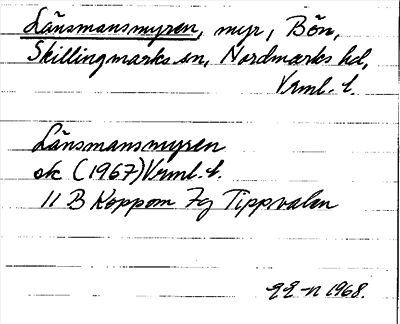 Länsmansmyren, myr, Bön,
Skillingmarks sn, Nordmarks hd,
Vrml. l.
Länsmansmyren
ek (1967) Vrml. l.
11 B Koppom 7g Tippvalen
1968.